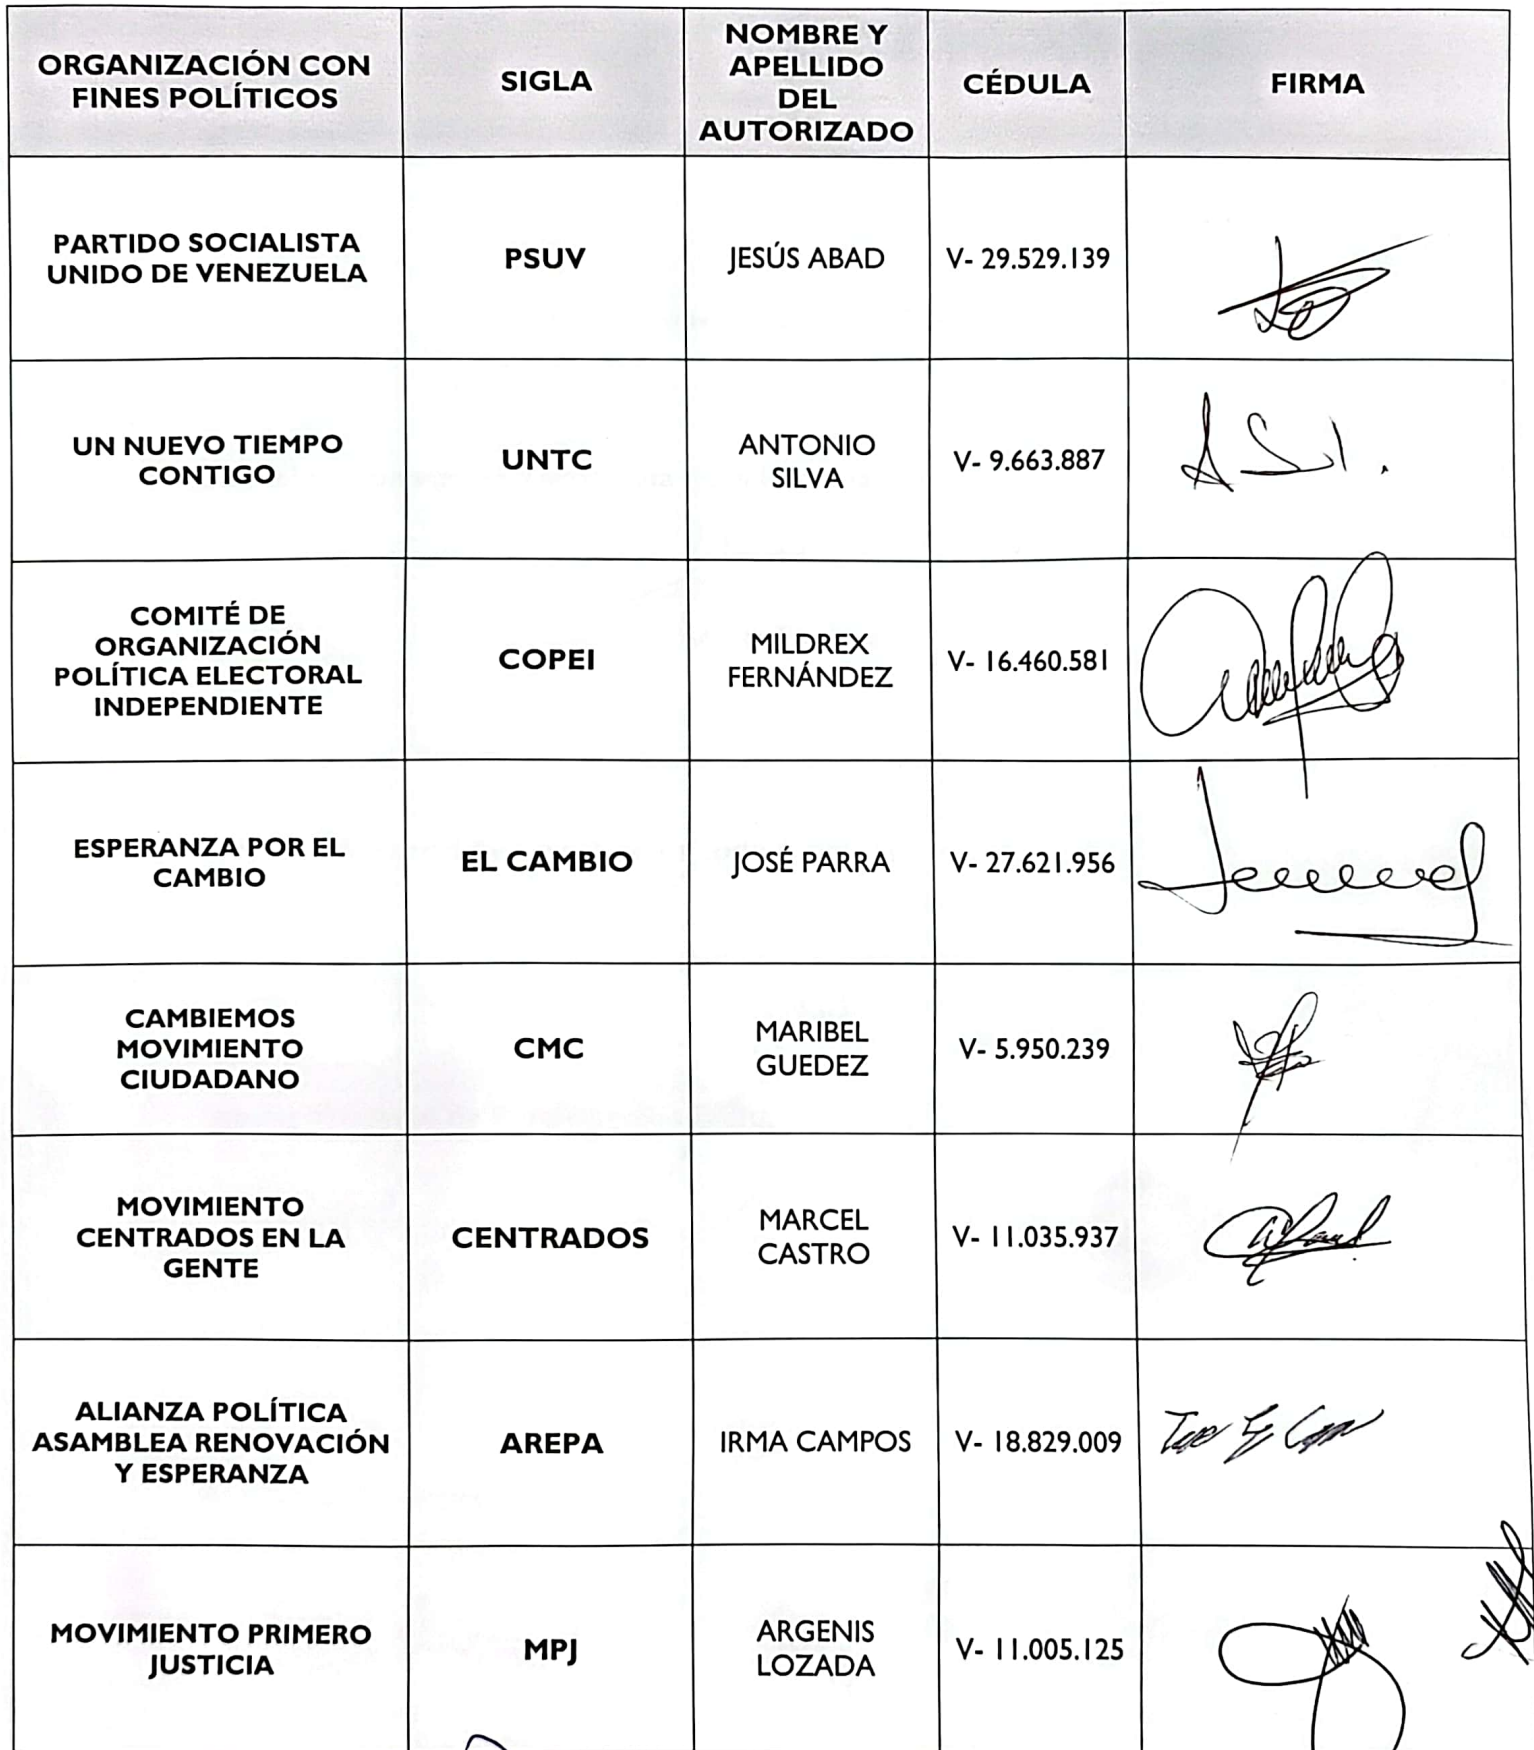 ORGANIZACIÓN CON
FINES POLÍTICOS
SIGLA
NOMBRE Y
APELLIDO
DEL
AUTORIZADO
CÉDULA
FIRMA
PARTIDO SOCIALISTA
UNIDO DE VENEZUELA
PSUV
JESÚS ABAD
V- 29.529.139
UN NUEVO TIEMPO
CONTIGO
UNTC
ANTONIO
SILVA
V- 9.663.887
COMITÉ DE
ORGANIZACIÓN
POLÍTICA ELECTORAL
INDEPENDIENTE
COPEI
MILDREX
FERNÁNDEZ
V- 16.460.581
ESPERANZA POR EL
CAMBIO
EL CAMBIO
JOSÉ PARRA
V- 27.621.956
CAMBIEMOS
MOVIMIENTO
CIUDADANO
CMC
MARIBEL
GUEDEZ
V- 5.950.239
MOVIMIENTO
CENTRADOS EN LA
GENTE
CENTRADOS
MARCEL
CASTRO
V- 11.035.937
ALIANZA POLÍTICA
ASAMBLEA RENOVACIÓN
Y ESPERANZA
AREPA
IRMA CAMPOS
V- 18.829.009
MOVIMIENTO PRIMERO
JUSTICIA
MPJ
ARGENIS
LOZADA
V- 11.005.125